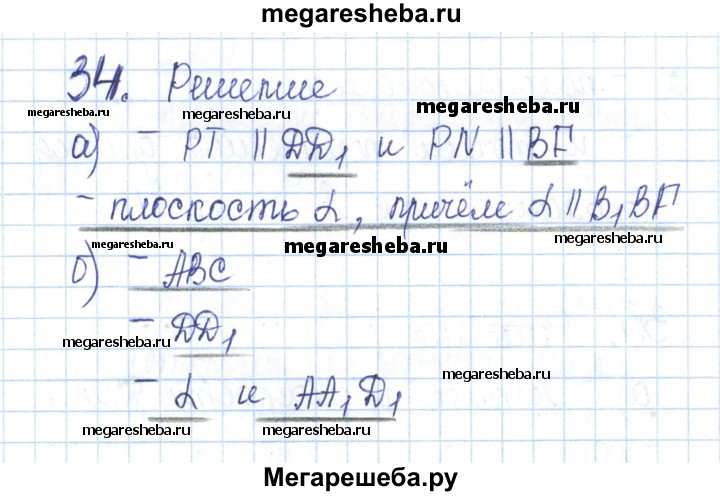 megaresheba.ru
34. Решение
megaresheba.ru
megaresheba.ru megaresheba.ru
а) – PT || DD₁ и PN || BF
– плоскость α, причём α || B₁BF
megaresheba.ru megaresheba.ru megaresheba.ru
б) – ABC
– DD₁
megaresheba.ru
megaresheba.ru
– α и AA₁D₁
megaresheba.ru megaresheba.ru
Мегарешеба.ру